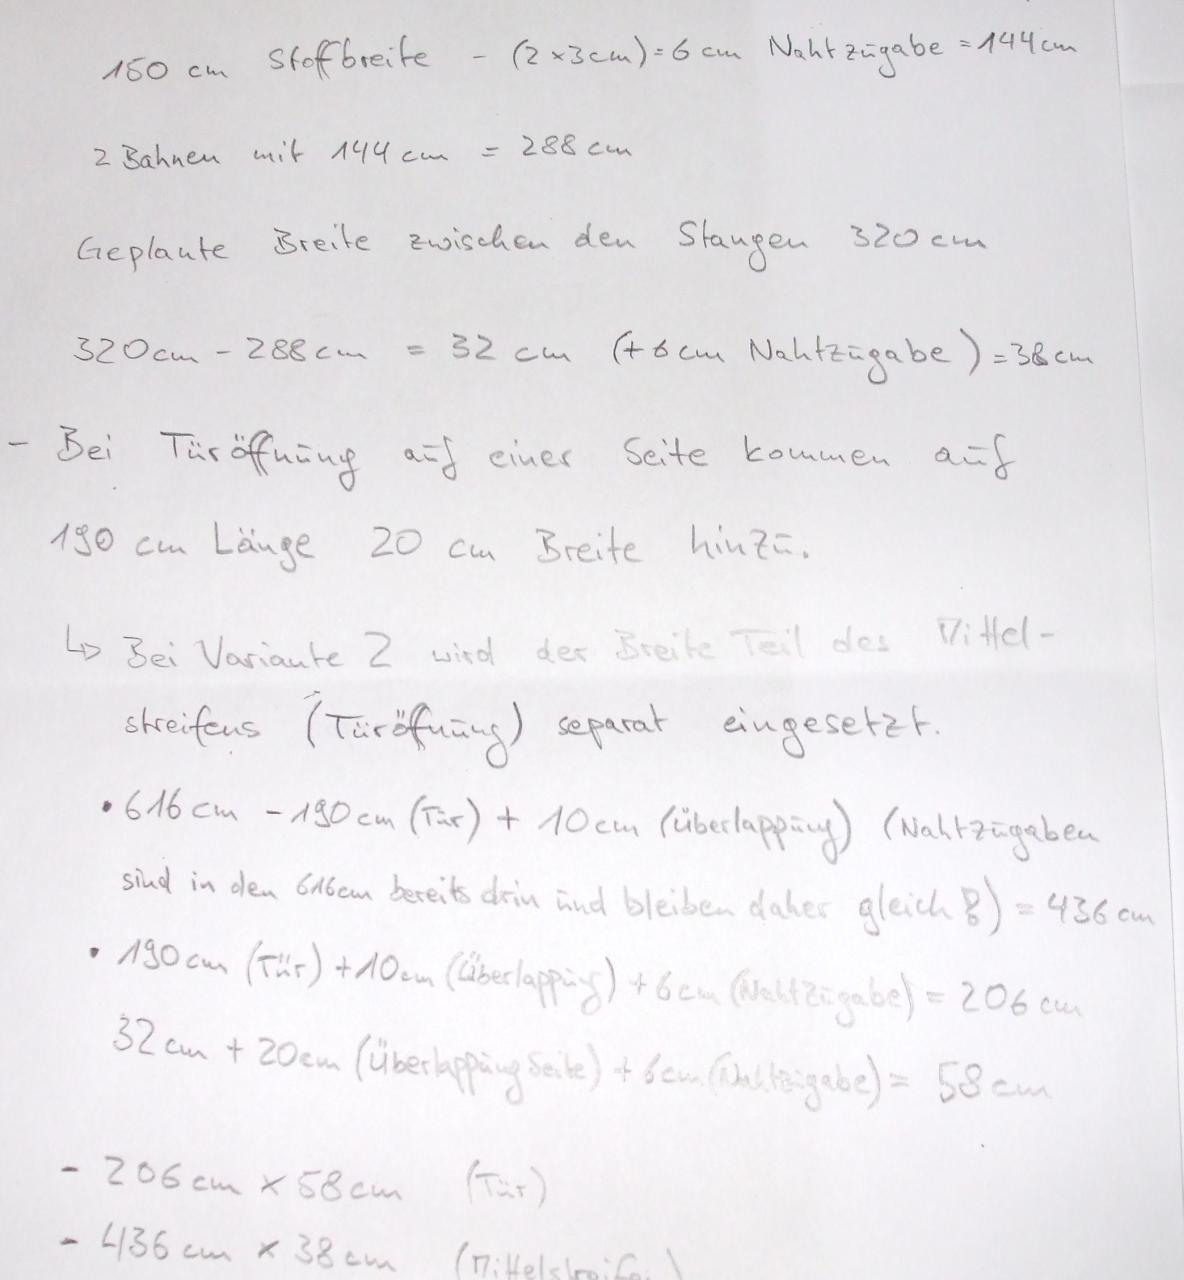 150 cm Stoffbreite - (2 x 3cm) = 6 cm Nahtzugabe = 144cm
2 Bahnen mit 144 cm = 288 cm
Geplante Breite zwischen den Stangen 320 cm
320cm - 288 cm = 32 cm (+ 6 cm Nahtzugabe) = 38 cm
- Bei Türöffnung auf einer Seite kommen auf
190 cm Länge 20 cm Breite hinzu.
↳ Bei Variante 2 wird der Breite Teil des Mittel-
streifens (Türöfnung) separat eingesetzt.
• 616 cm - 190 cm (Tür) + 10 cm (überlappung) (Nahtzugaben
sind in den 616cm bereits drin und bleiben daher gleich!) = 436 cm
• 190 cm (Tür) + 10 cm (Überlappung) + 6 cm (Nahtzugabe) = 206 cm
32 cm + 20cm (Überlappung Seite) + 6 cm (Nahtzugabe) = 58 cm
- 206 cm x 58 cm (Tür)
- 436 cm x 38 cm (Mittelstreifen)